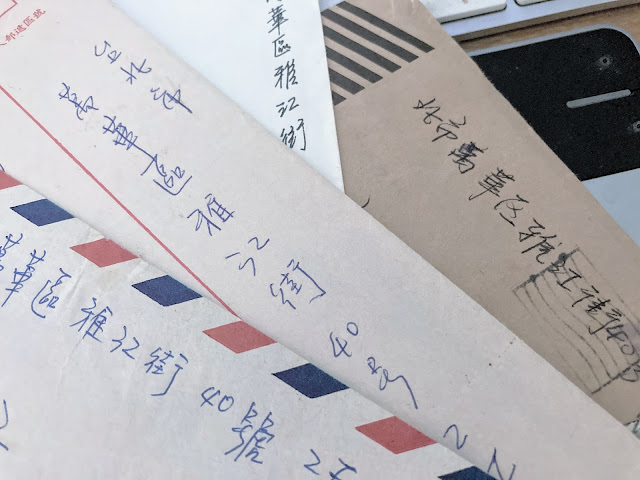 郵遞區號
台北市萬華區雅江街40號2
華區雅江街
北市萬華区雅江街40号
萬華區雅江街40號2F